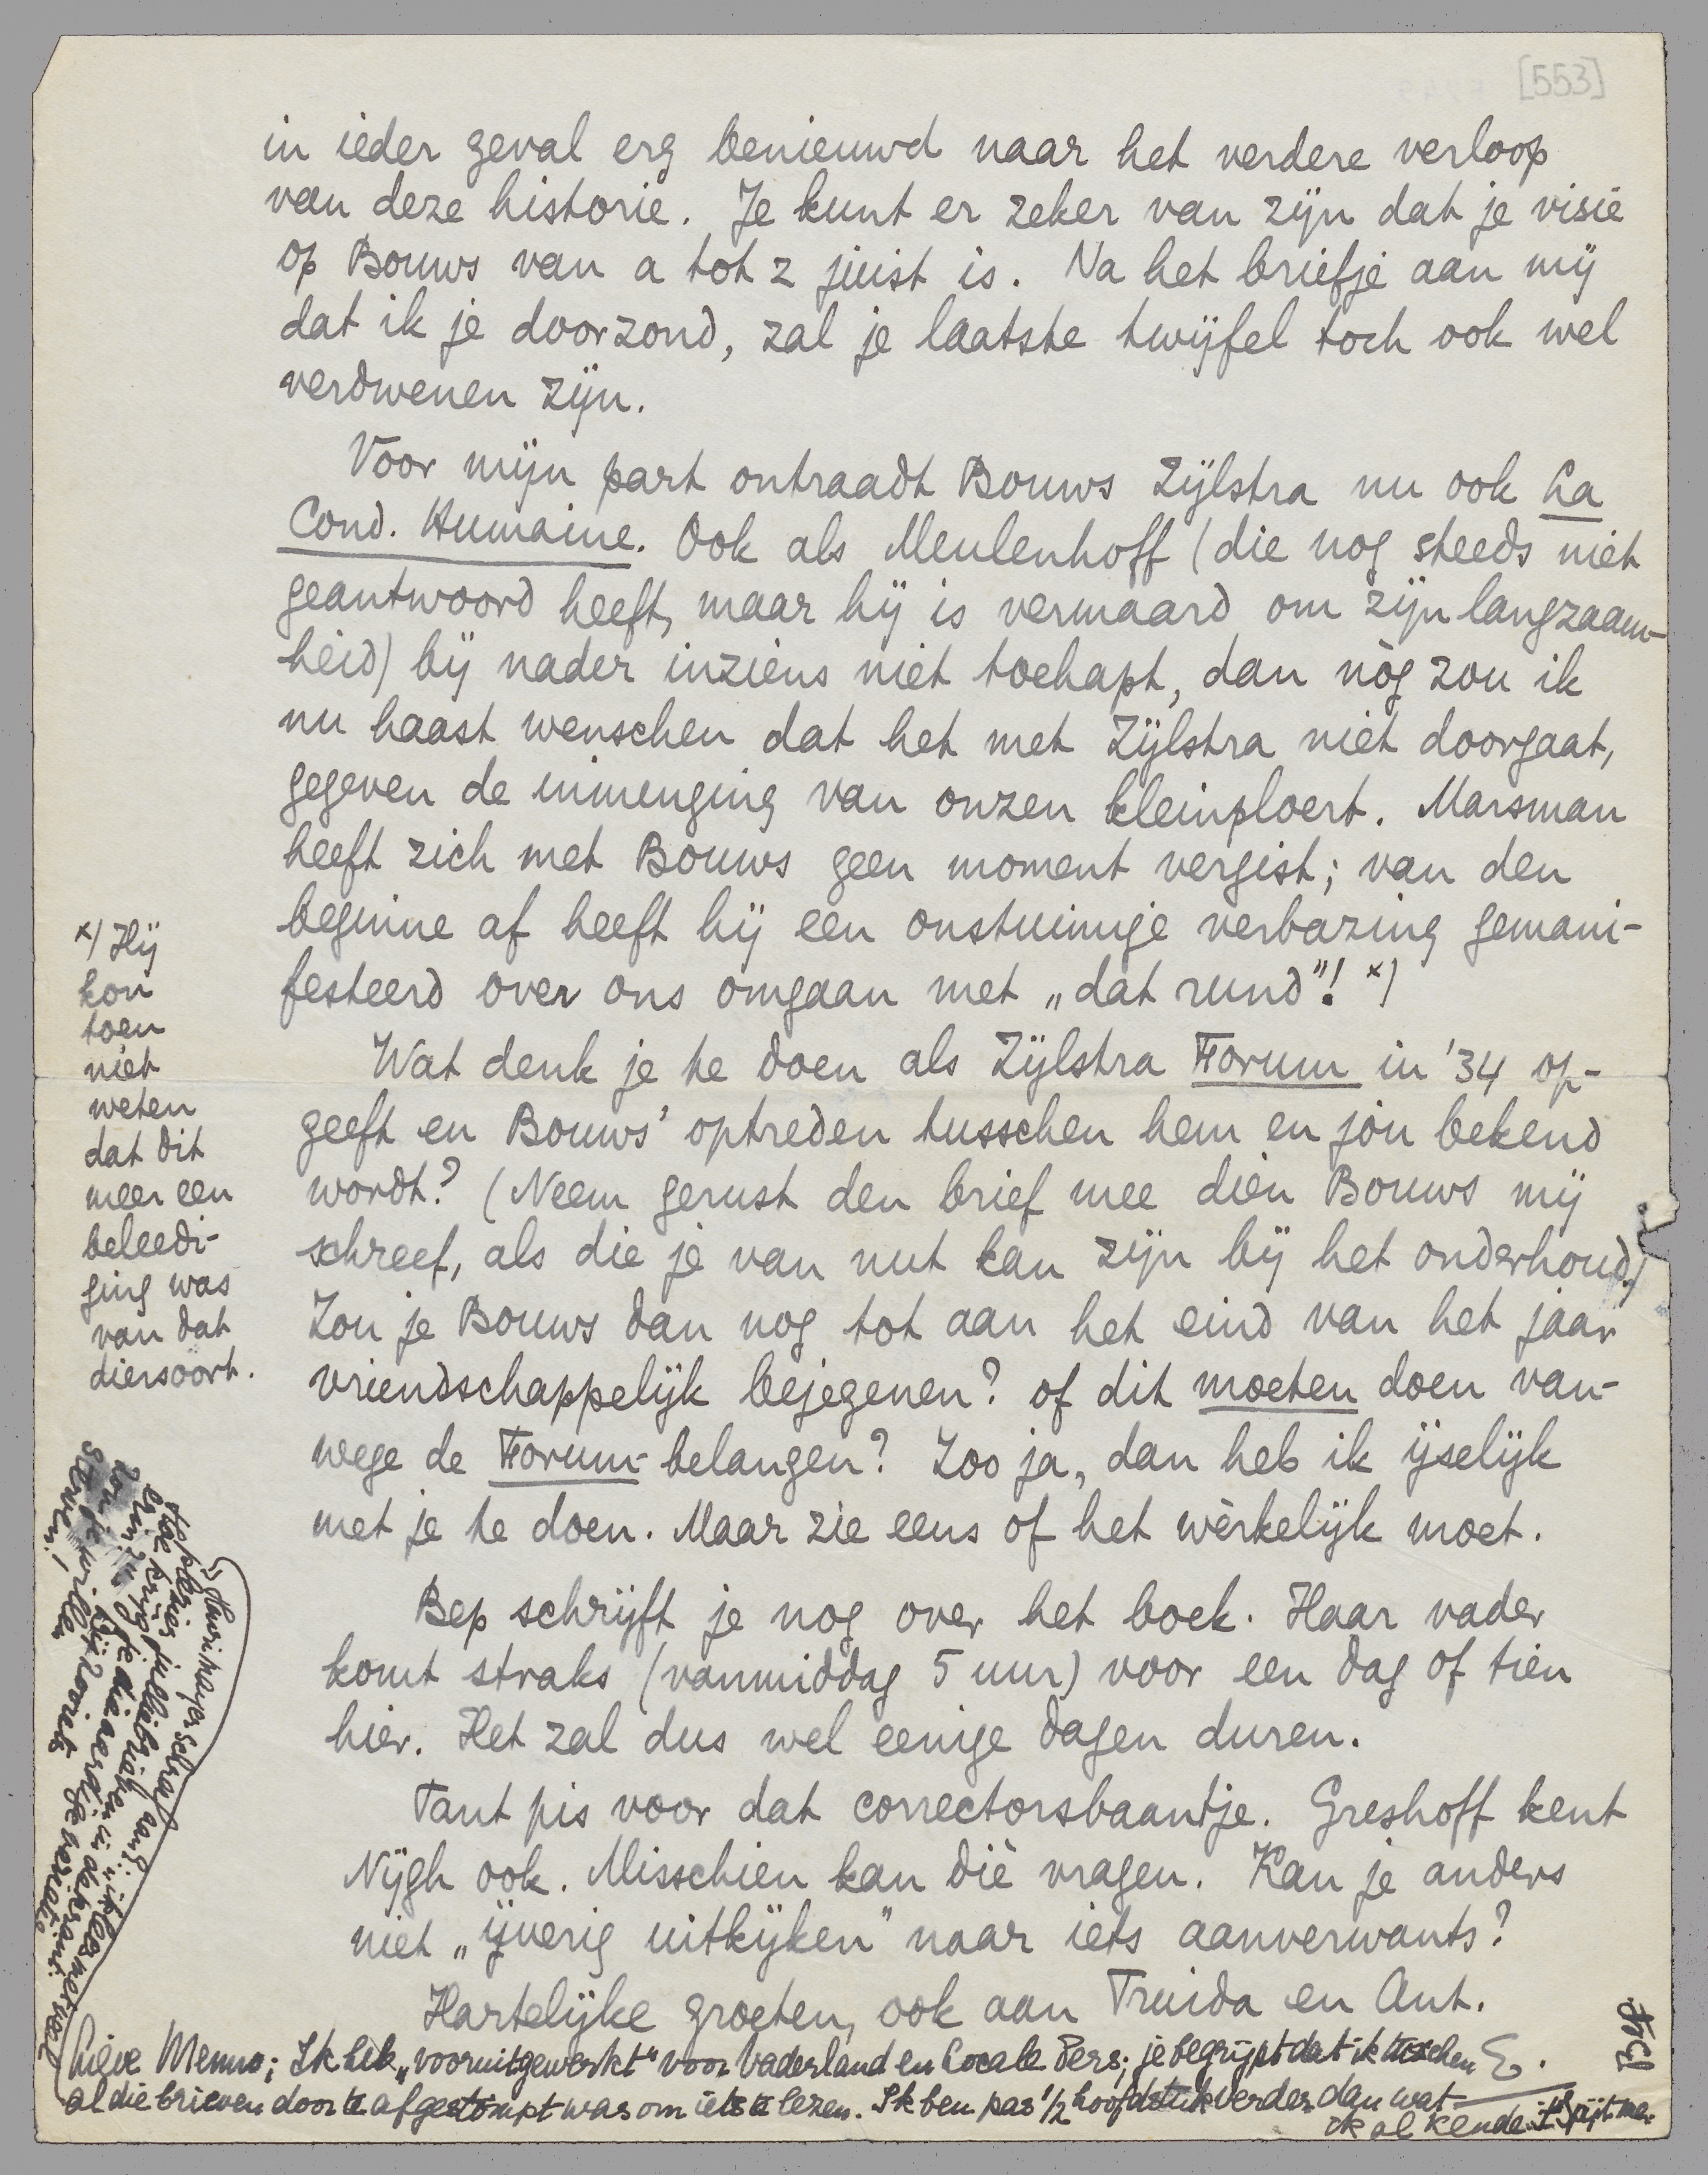 [553]
in ieder geval erg benieuwd naar het verdere verloop
van deze historie. Je kunt er zeker van zijn dat je visie
op Bouws van a tot z juist is. Na het briefje aan mij
dat ik je doorzond, zal je laatste twijfel toch ook wel
verdwenen zijn.
Voor mijn part ontraadt Bouws Zijlstra nu ook La
Cond. Humaine. Ook als Meulenhoff (die nog steeds niet
geantwoord heeft, maar hij is vermaard om zijn langzaam-
heid) bij nader inziens niet toehapt, dan nòg zou ik
nu haast wenschen dat het met Zijlstra niet doorgaat,
gegeven de inmenging van onzen kleinploert. Marsman
heeft zich met Bouws geen moment vergist; van den
beginne af heeft hij een onstuimige verbazing gemani-
festeerd over ons omgaan met „dat rund"! x)
Wat denk je te doen als Zijlstra Forum in '34 op-
geeft en Bouws' optreden tusschen hem en jòu bekend
wordt? (Neem gerust den brief mee dien Bouws mij
schreef, als die je van nut kan zijn bij het onderhoud.)
Zou je Bouws dan nog tot aan het eind van het jaar
vriendschappelijk bejegenen? of dit moeten doen van-
wege de Forum-belangen? Zoo ja, dan heb ik ijselijk
met je te doen. Maar zie eens of het wèrkelijk moet.
Bep schrijft je nog over het boek. Haar vader
komt straks (vanmiddag 5 uur) voor een dag of tien
hier. Het zal dus wel eenige dagen duren.
Tant pis voor dat correctorsbaantje. Greshoff kent
Nijgh ook. Misschien kan diè vragen. Kan je anders
niet „ijverig uitkijken" naar iets aanverwants?
Hartelijke groeten, ook aan Truida en Ant.
E.
x) Hij
kon
toen
niet
weten
dat dit
meer een
beleedi-
ging was
van dat
diersoort.
Lieve Menno; Ik heb „vooruitgewerkt" voor Vaderland en Locale Pers; je begrijpt dat ik tusschen
al die brieven door te afgestompt was om iets te lezen. Ik ben pas 1/2 hoofdstuk verder dan wat
ik al kende. 't Spijt me.
schraf aan: „ik las met veel
plezier jullie brieven in de krant.
Hoe krijg je die aardige